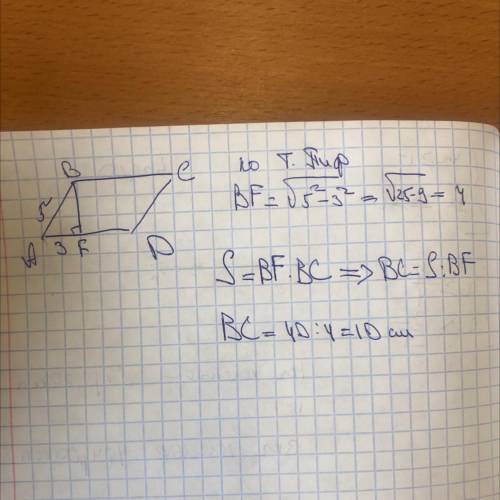 B C
5
A 3 F D
по Т. Пиф
BF = √5²-3² = √25-9 = 4
S = BF · BC => BC = S : BF
BC = 40 : 4 = 10 см